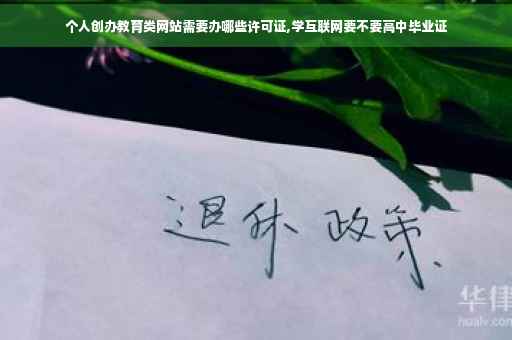 个人创办教育类网站需要办哪些许可证,学互联网要不要高中毕业证
退休 政策
华律
hualv.com